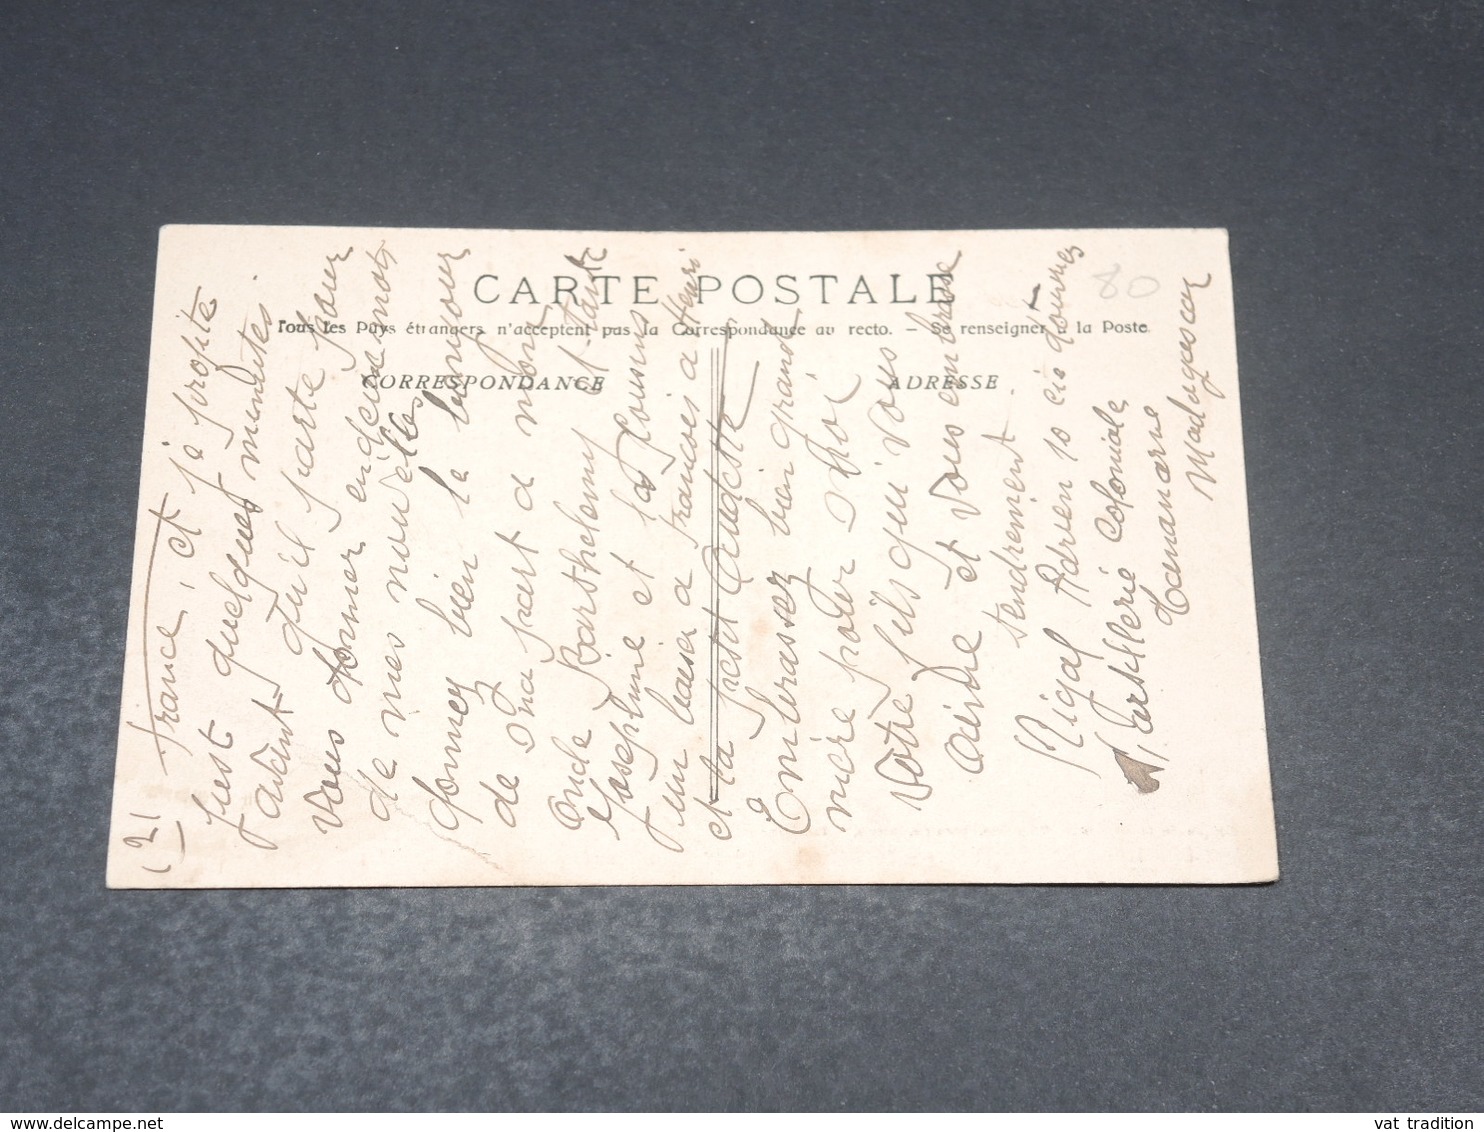 CARTE POSTALE
Tous les Pays étrangers n'acceptent pas la Correspondance au recto. - Se renseigner à la Poste
CORRESPONDANCE
ADRESSE
80
(2)
France, et je profite
quelques minutes
avant qu'il parte pour
vous donner en deux mots
de mes nouvelles
donnez bien le bonjour
de ma part a mon
oncle Barthelemy et tante
Josephine et cousins
un baiser a Francois a Henri
et la petit Audette
Embrassez bien grand
mère pour moi
Votre fils qui vous
aime et vous embrasse
tendrement.
Rigal Adrien 10 cie d'ouvriers
d'artillerie coloniale
Tamanarive
Madagascar
vat tradition